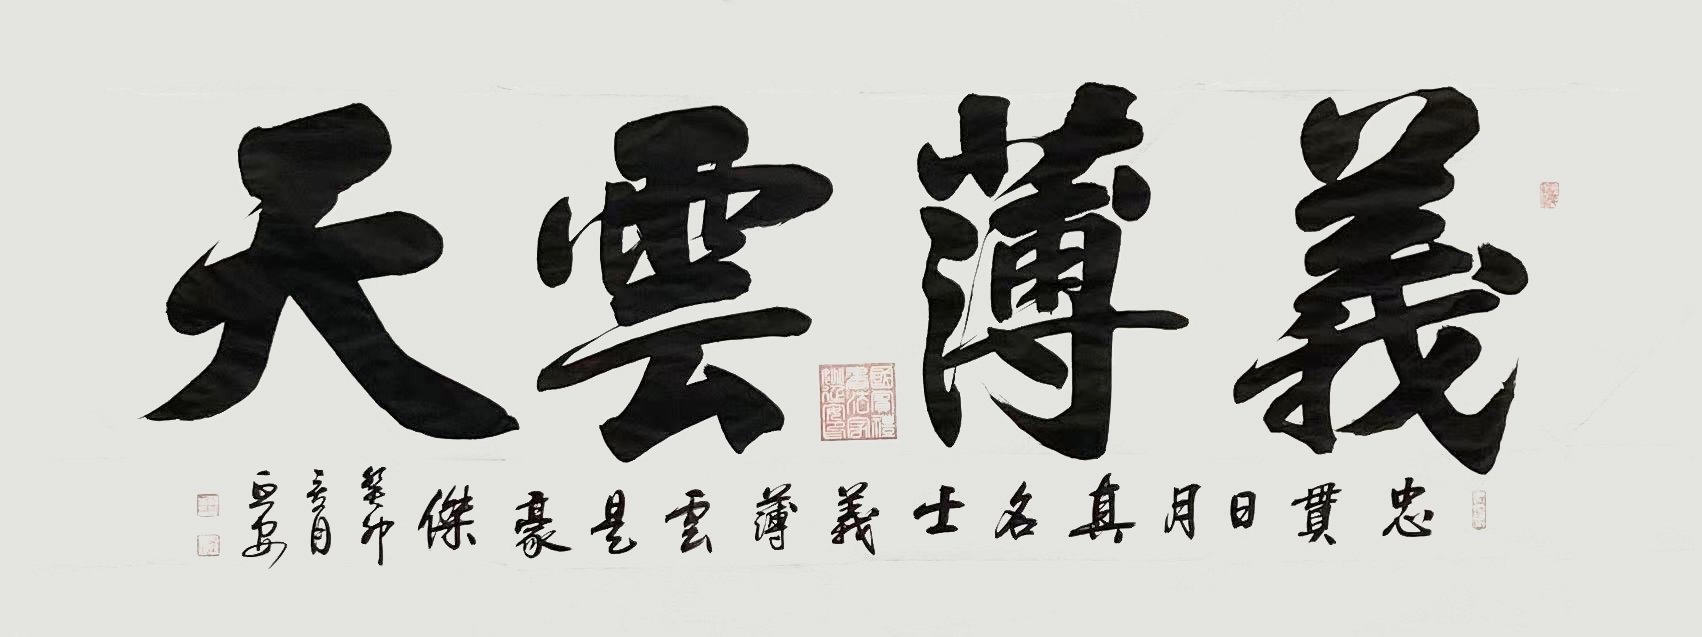 義薄雲天
忠貫日月真名士義薄雲是豪傑
癸卯